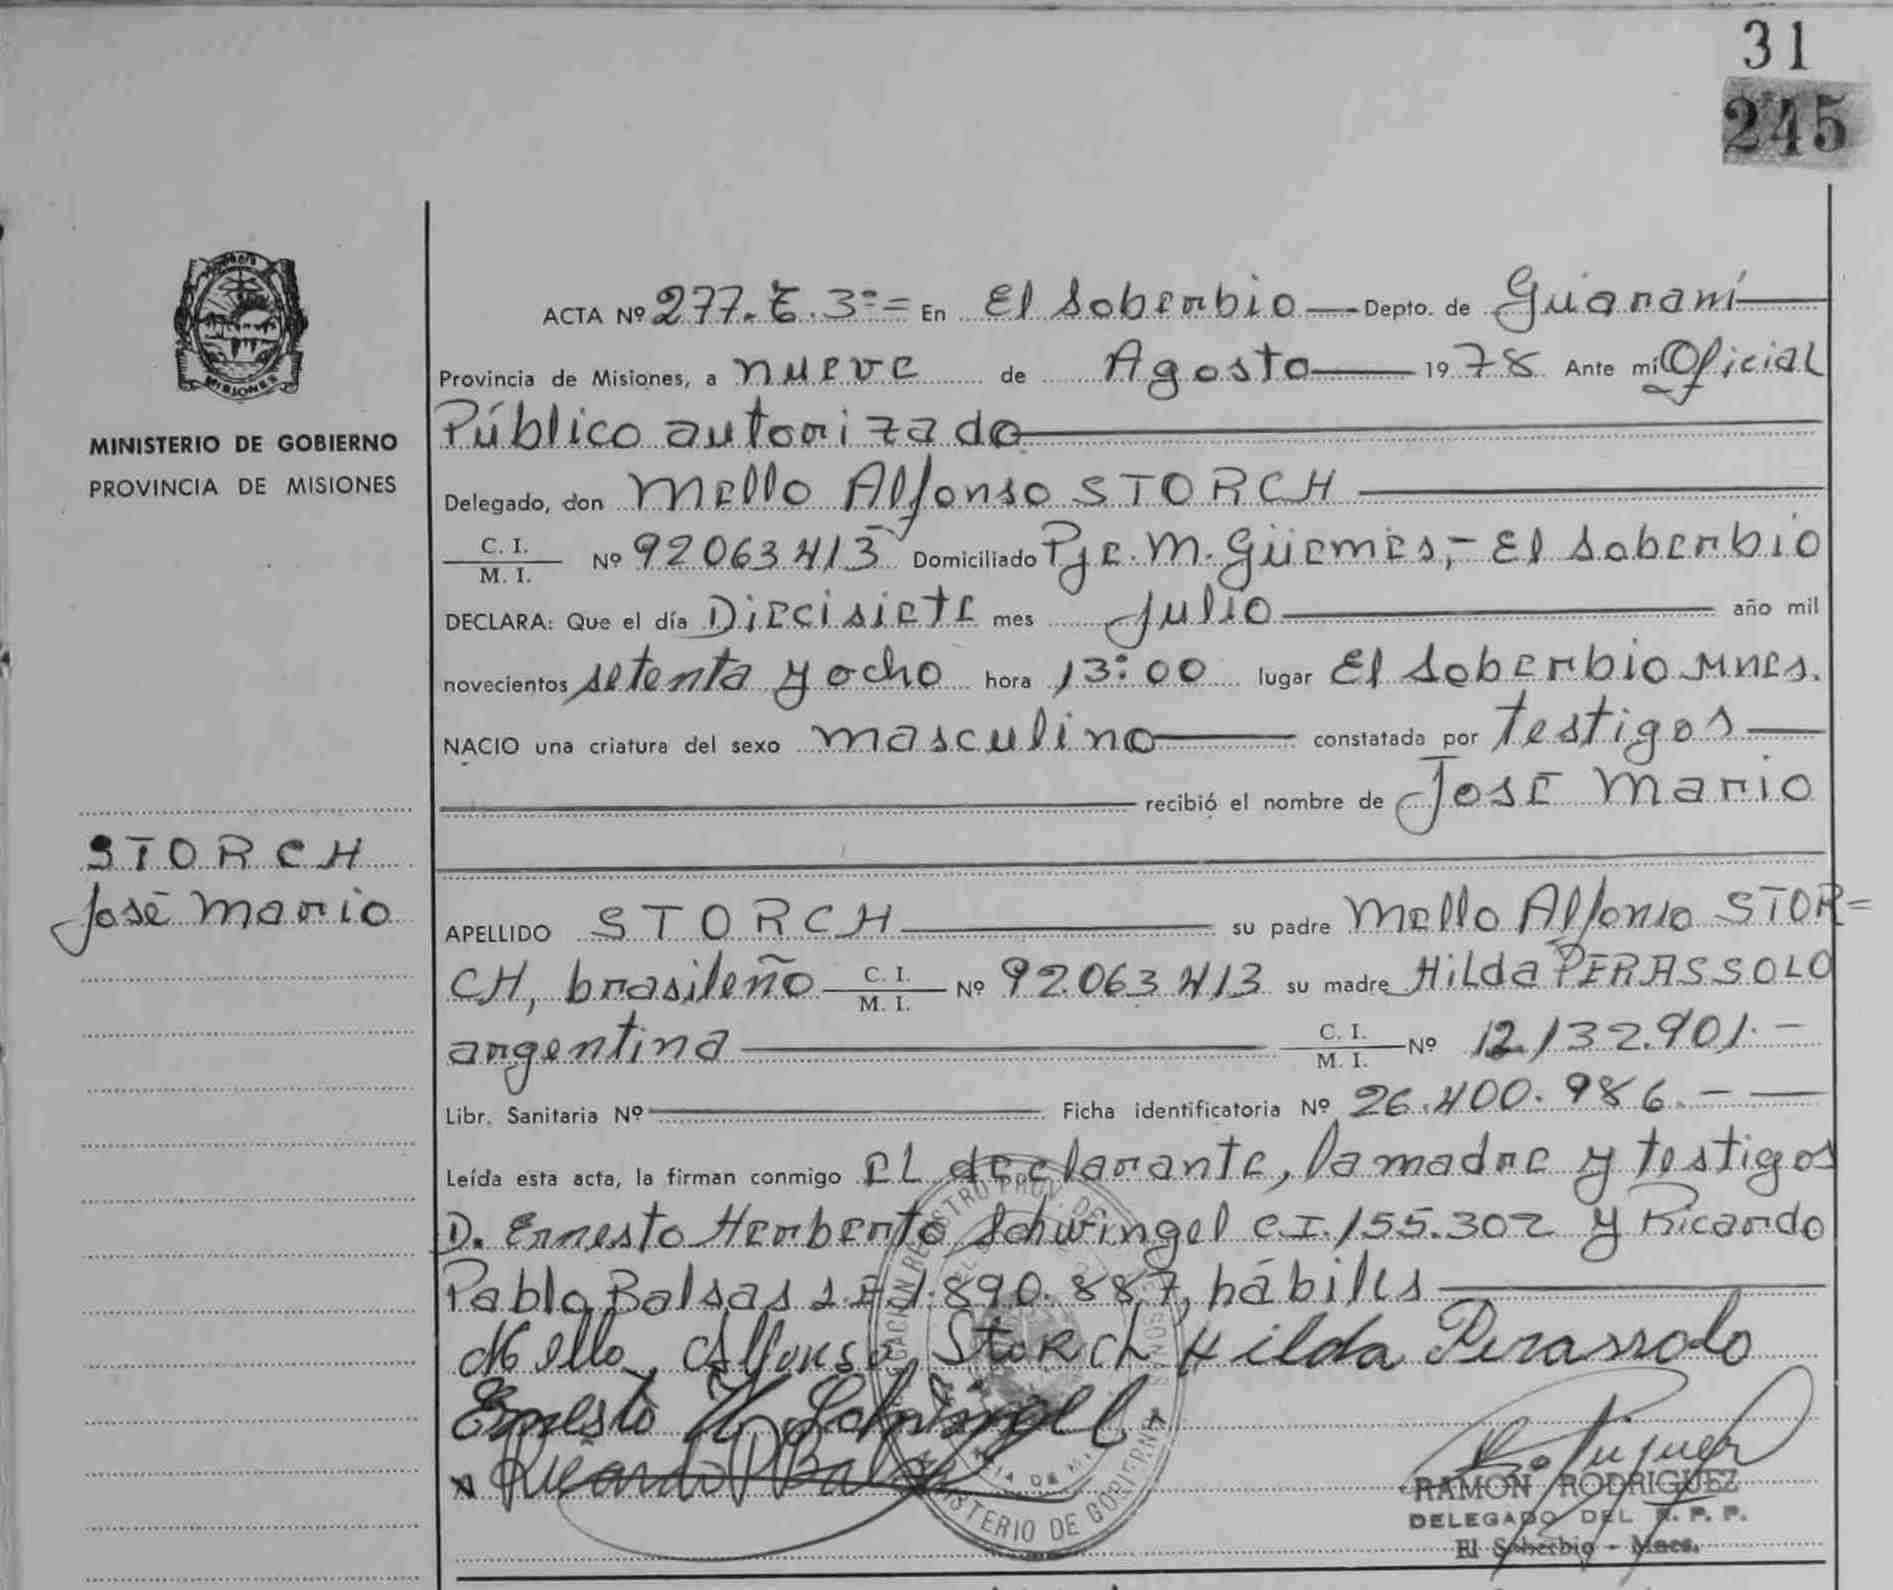 31
245
MISIONES
MINISTERIO DE GOBIERNO
PROVINCIA DE MISIONES
STORCH
José Mario
ACTA Nº 277. T. 3º = En El Soberbio — Depto. de Guaraní —
Provincia de Misiones, a nueve de Agosto — 1978 Ante mi Oficial
Público autorizado —
Delegado, don Mello Alfonso STORCH —
C. I. / M. I. Nº 92063413 Domiciliado Pje. M. Güemes,- El Soberbio
DECLARA: Que el día Diecisiete mes Julio — año mil
novecientos setenta y ocho hora 13:00 lugar El Soberbio Mnes.
NACIO una criatura del sexo masculino — constatada por testigos —
— recibió el nombre de José Mario
APELLIDO STORCH — su padre Mello Alfonso STOR=
CH, brasileño — C. I. / M. I. Nº 92.063413 su madre Hilda PERASSOLO
argentina — C. I. / M. I. Nº 12.132.901.-
Libr. Sanitaria Nº — Ficha identificatoria Nº 26.400.986.- —
Leída esta acta, la firman conmigo el declarante, la madre y testigos
D. Ernesto Herberto Schwingel C.I. 155.302 y Ricardo
Pablo Balsas 1.890.887, hábiles —
Mello Alfonso Storch Hilda Perassolo
Ernesto H. Schwingel
Ricardo P Balsas
RAMON RODRIGUEZ
DELEGADO DEL R. P. P.
El Soberbio - Mnes.
MINISTERIO DE GOBIERNO